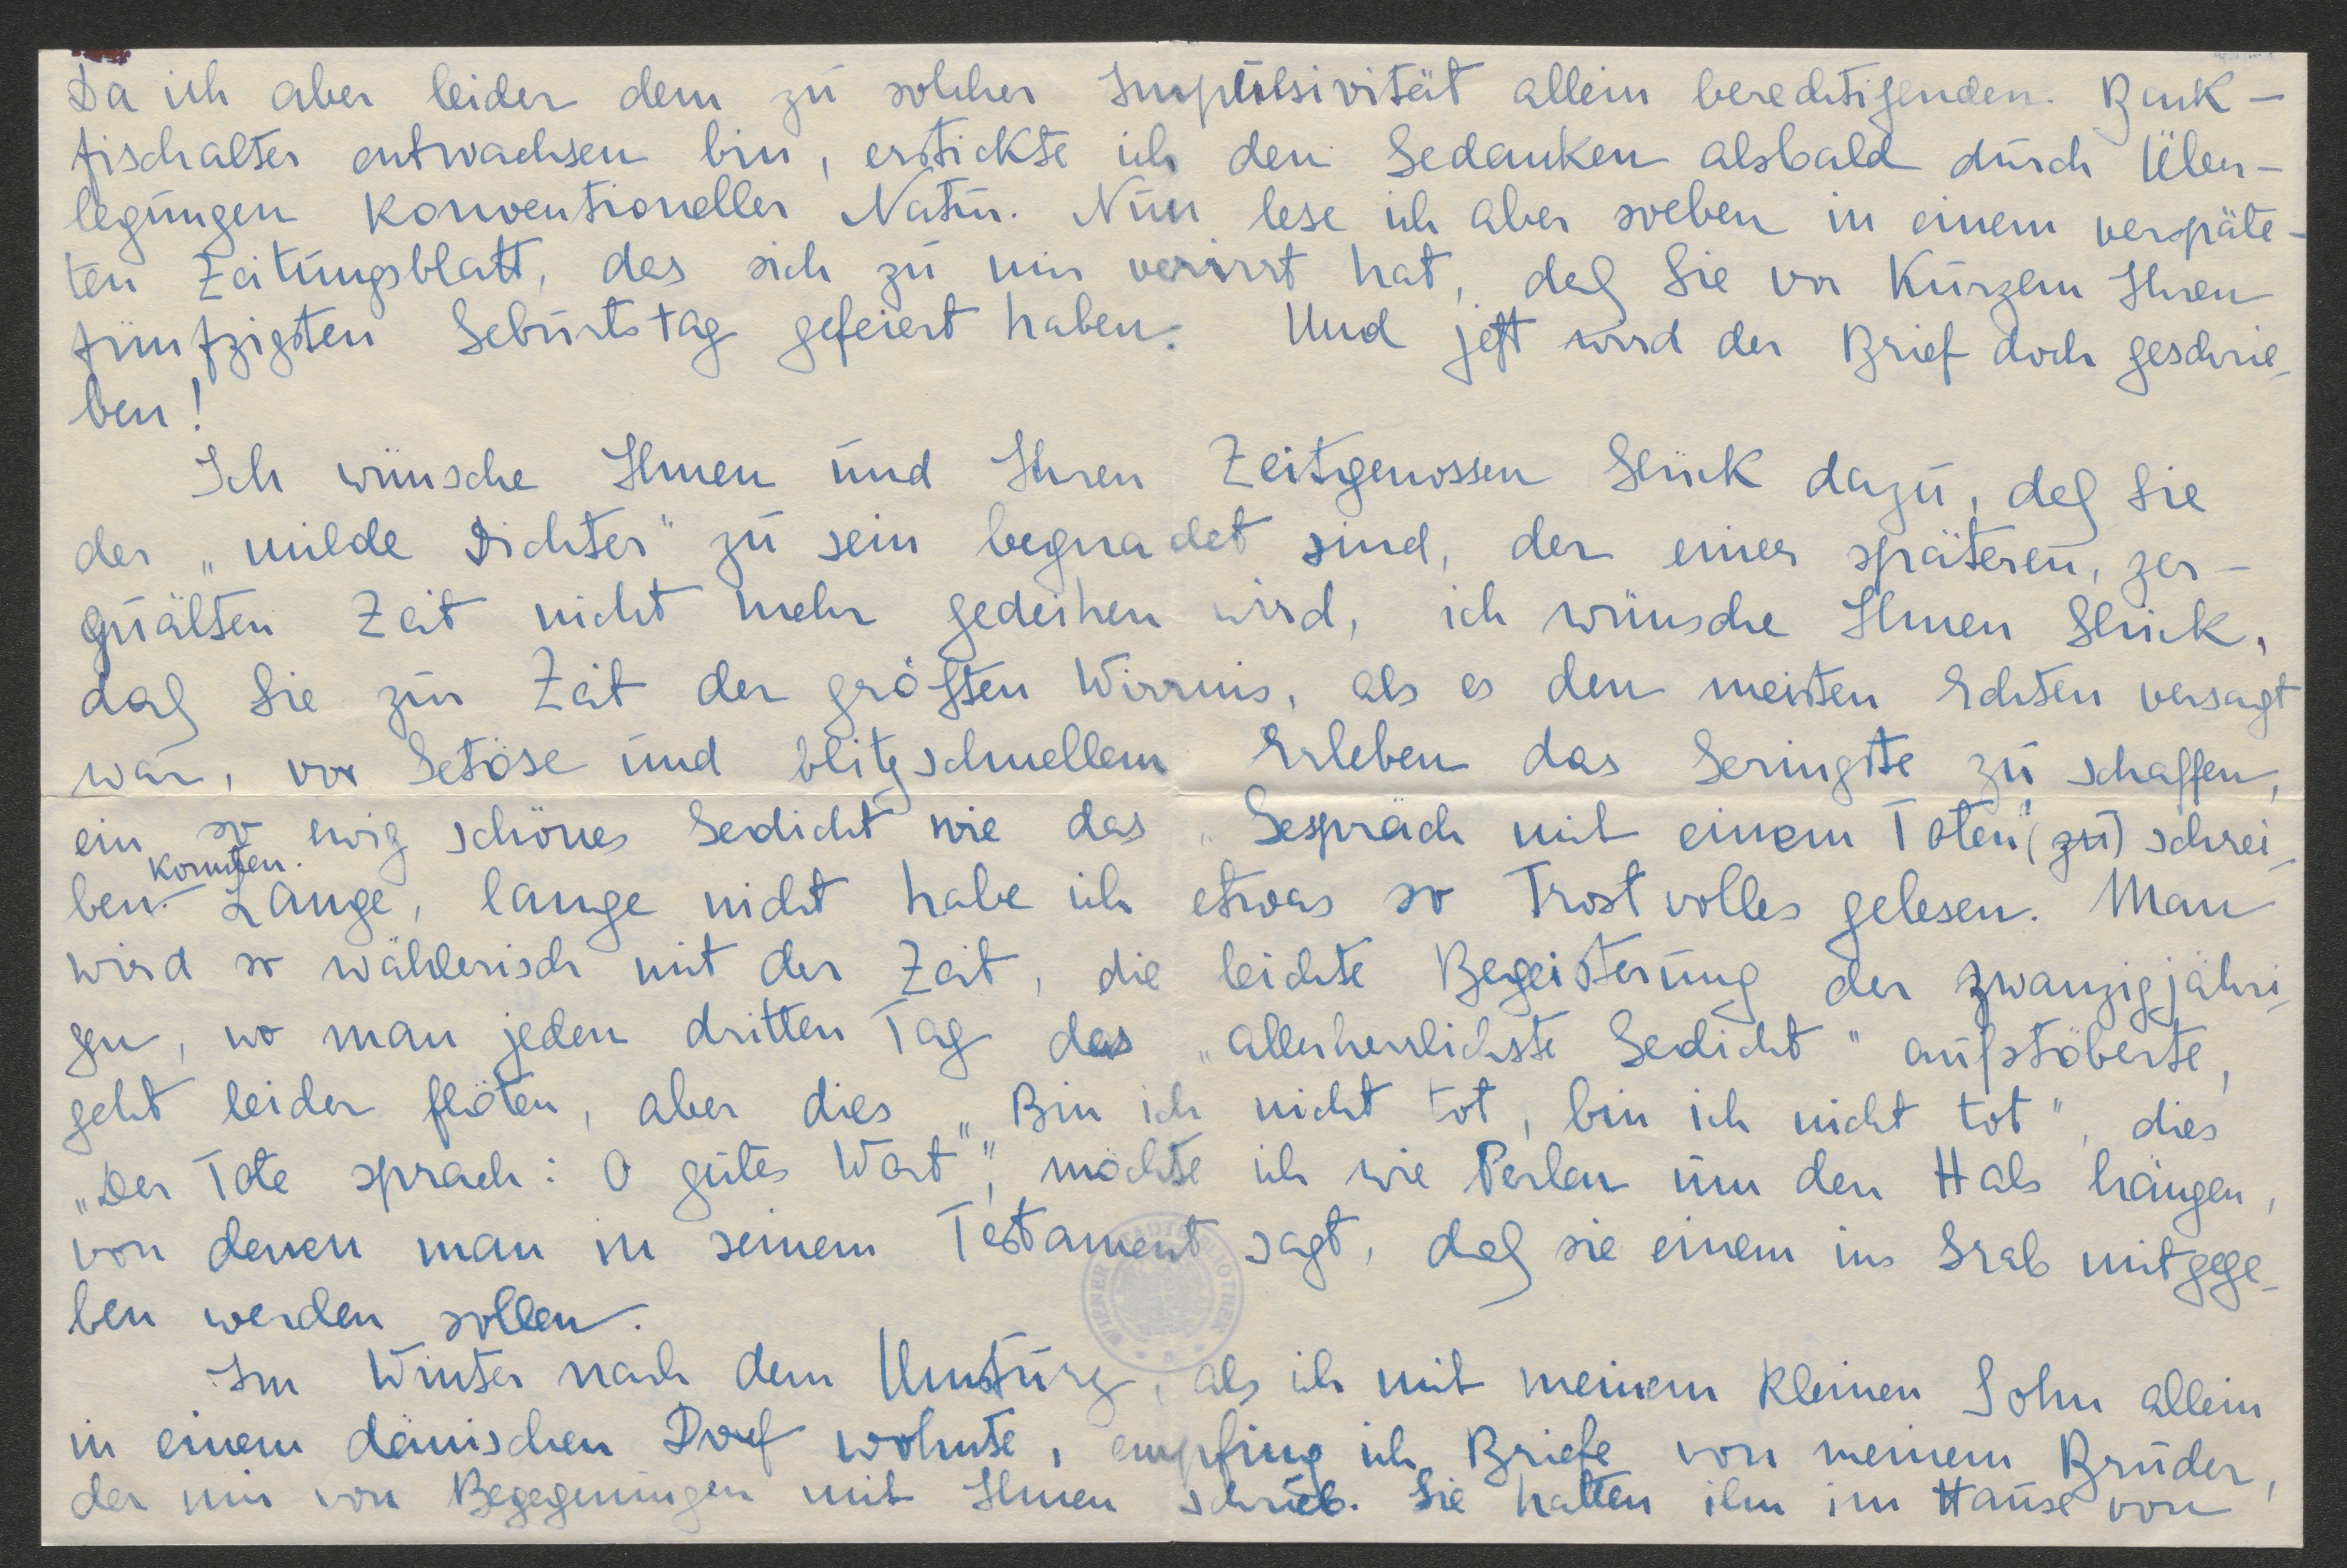 Da ich aber leider dem zu solcher Impulsivität allein berechtigenden Back-
fischalter entwachsen bin, erstickte ich den Gedanken alsbald durch Über-
legungen konventioneller Natur. Nun lese ich aber soeben in einem verspäte-
ten Zeitungsblatt, das sich zu mir verirrt hat, daß Sie vor Kurzem Ihren
fünfzigsten Geburtstag gefeiert haben. Und jetzt wird der Brief doch geschrie-
ben!
Ich wünsche Ihnen und Ihren Zeitgenossen Glück dazu, daß Sie
der „milde Dichter" zu sein begnadet sind, der einer späteren, zer-
quälten Zeit nicht mehr gedeihen wird, ich wünsche Ihnen Glück,
daß Sie zur Zeit der größten Wirrnis, als es den meisten Echten versagt
war, vor Getöse und blitzschnellem Erleben das Geringste zu schaffen,
ein so ewig schönes Gedicht wie das „Gespräch mit einem Toten" (zu) schrei-
konnten.
ben. Lange, lange nicht habe ich etwas so Trostvolles gelesen. Man
wird so wählerisch mit der Zeit, die leichte Begeisterung der zwanzigjähri-
gen, wo man jeden dritten Tag das „allerherrlichste Gedicht" aufstöberte,
geht leider flöten, aber dies „Bin ich nicht tot, bin ich nicht tot", dies
„Der Tote sprach: O gutes Wort", möchte ich wie Perlen um den Hals hängen,
von denen man in seinem Testament sagt, daß sie einem ins Grab mitgege-
ben werden sollen.
Im Winter nach dem Umsturz, als ich mit meinem kleinen Sohn allein
in einem dänischen Dorf wohnte, empfing ich Briefe von meinem Bruder,
der mir von Begegnungen mit Ihnen schrieb. Sie hatten ihm im Hause von
WIENER STADTBIBLIOTHEK